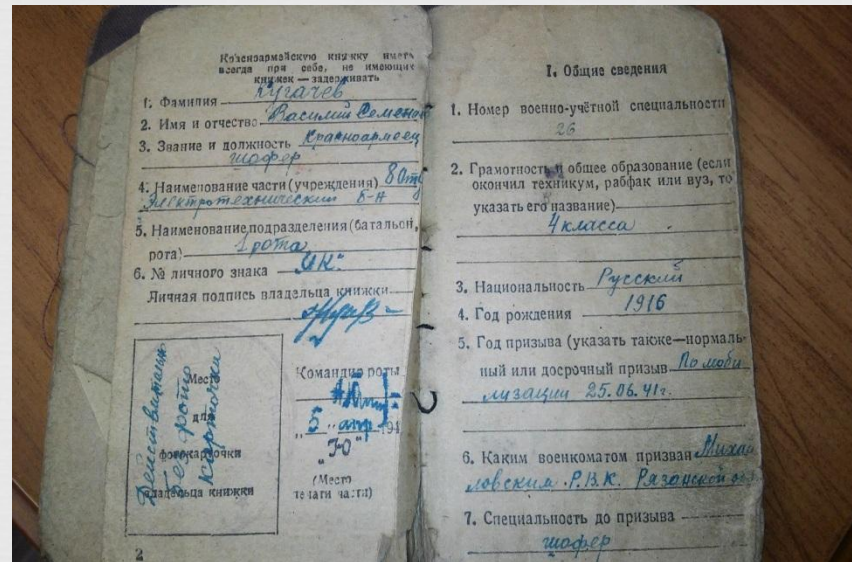 Красноармейскую книжку иметь
всегда при себе, не имеющих
книжек — задерживать
1. Фамилия Кугачев
2. Имя и отчество Василий Семенов
3. Звание и должность Красноармеец
шофер
4. Наименование части (учреждения) 8 Отд
Электротехнический б-н
5. Наименование подразделения (батальон,
рота) 1 рота
6. № личного знака
Личная подпись владельца книжки
Место
для
фотокарточки
владельца книжки
Действительна
без фото
карточки
Командир роты
"5" апр 194
"Ю"
(Место
печати части)
2
I. Общие сведения
1. Номер военно-учётной специальности
26
2. Грамотность и общее образование (если
окончил техникум, рабфак или вуз, то
указать его название)
4 класса
3. Национальность Русский
4. Год рождения 1916
5. Год призыва (указать также—нормаль-
ный или досрочный призыв По моби
лизации 25.06.41г.
6. Каким военкоматом призван Михай
ловским Р.В.К. Рязанской обл
7. Специальность до призыва
шофер